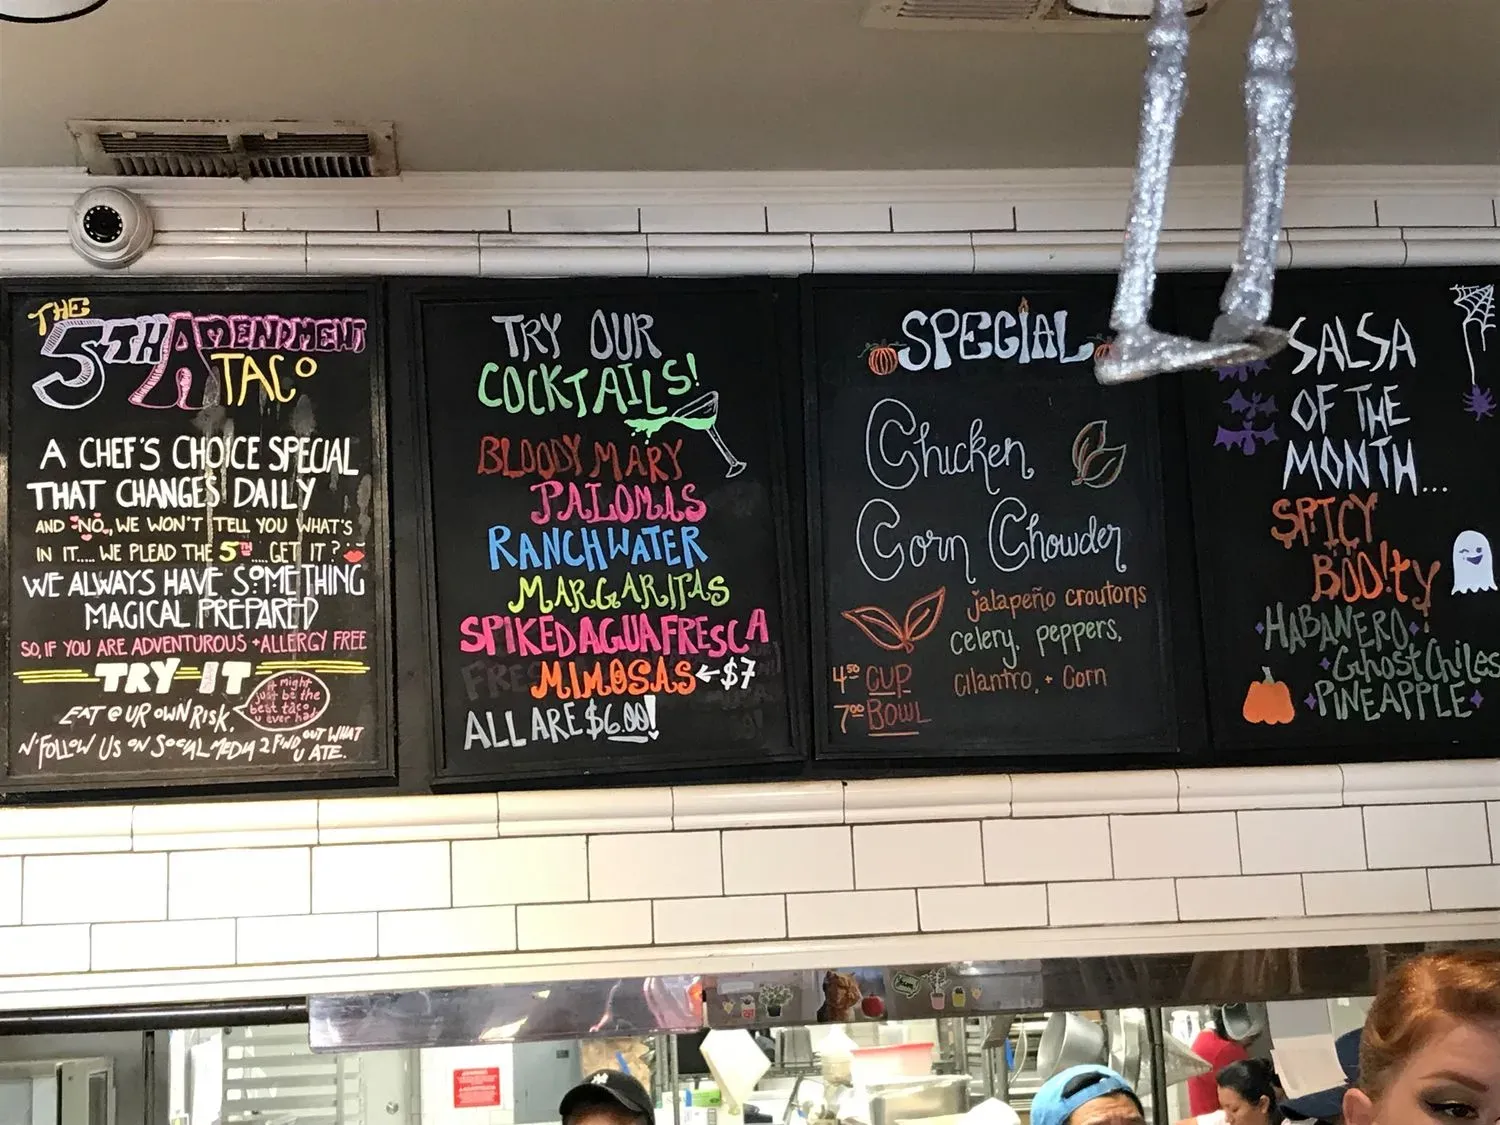 THE
5TH AMENDMENT
TACO
A CHEF'S CHOICE SPECIAL
THAT CHANGES DAILY
AND "NO", WE WON'T TELL YOU WHAT'S
IN IT.... WE PLEAD THE 5TH.... GET IT?
WE ALWAYS HAVE SOMETHING
MAGICAL PREPARED
SO, IF YOU ARE ADVENTUROUS + ALLERGY FREE
TRY IT
it might
just be the
best taco
u ever had
EAT @ UR OWN RISK,
N' FOLLOW US ON SOCIAL MEDIA 2 FIND OUT WHAT
U ATE.
TRY OUR
COCKTAILS!
BLOODY MARY
PALOMAS
RANCH WATER
MARGARITAS
SPIKED AGUA FRESCA
MIMOSAS ← $7
ALL ARE $6.00!
SPECIAL
Chicken
Corn Chowder
jalapeño croutons
celery, peppers,
cilantro, + Corn
4.50 CUP
7.00 BOWL
SALSA
OF THE
MONTH...
SPICY
BOO!ty
HABANERO
Ghost Chiles
PINEAPPLE